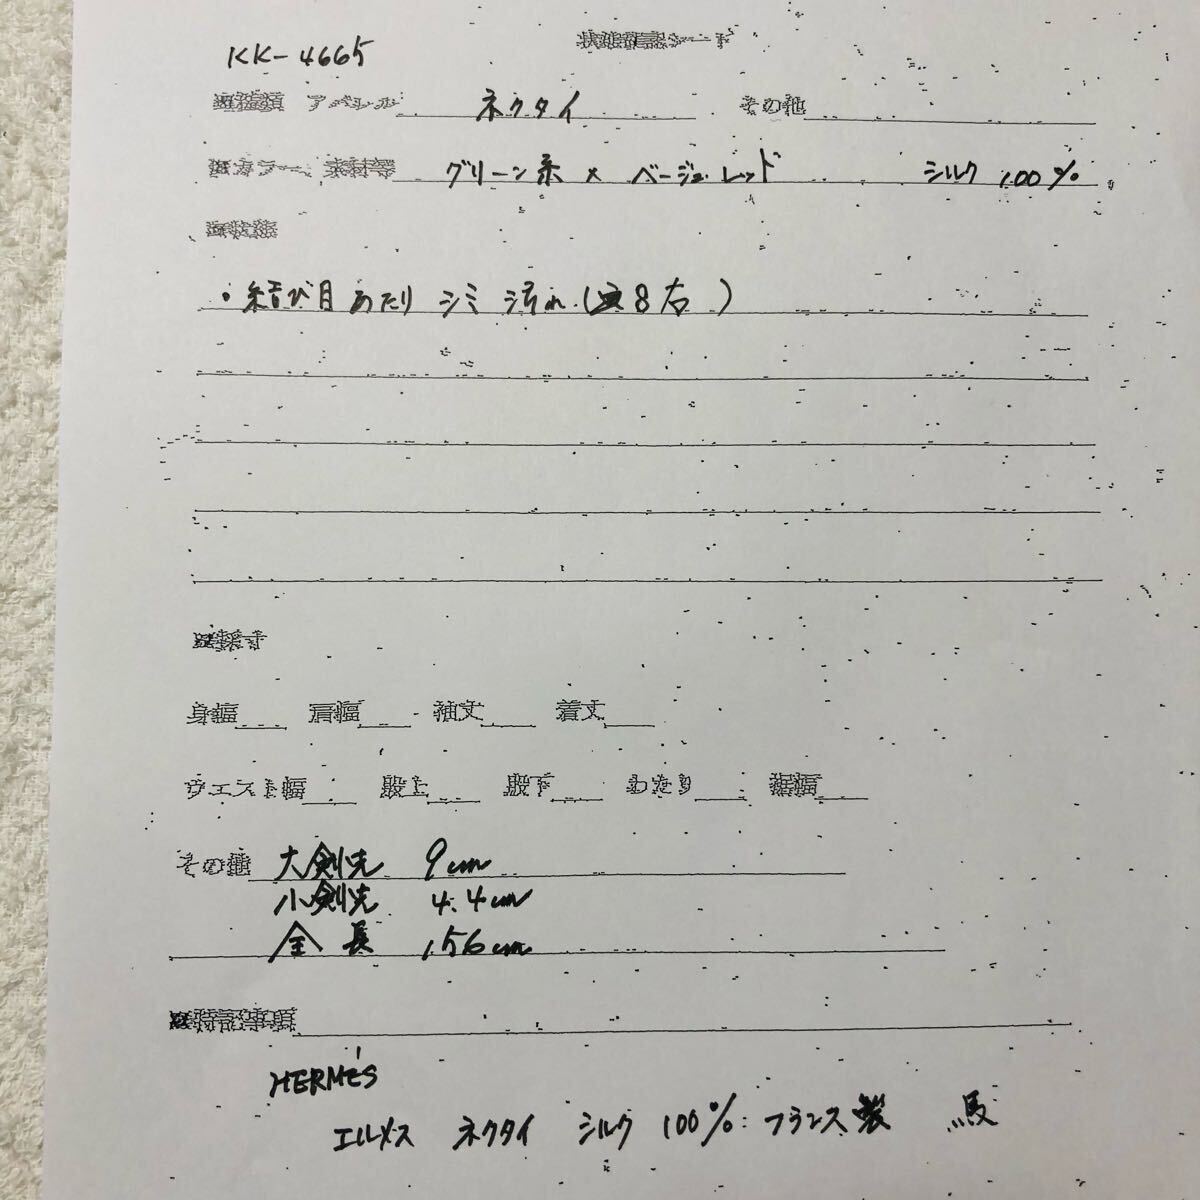 KK-4665
状態確認シート
アパレル ネクタイ その他
カラー、素材等 グリーン系 × ベージュ.レッド シルク 100%
状態
・結び目あたり シミ 汚れ(8右)
採寸
身幅 肩幅 袖丈 着丈
ウエスト幅 股上 股下 わたり 裾幅
その他 大剣先 9cm
小剣先 4.4cm
全長 156cm
特記事項
HERMÈS
エルメス ネクタイ シルク 100%: フランス製 馬